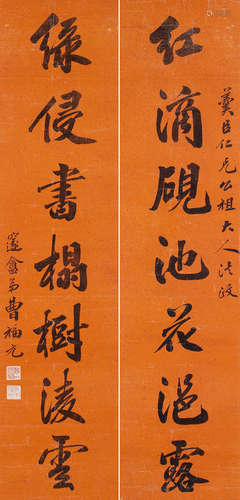 臣仁兄公祖大人法政
紅滴硯池花浥露
綠侵書榻樹淩雲
邃盦弟曹福元